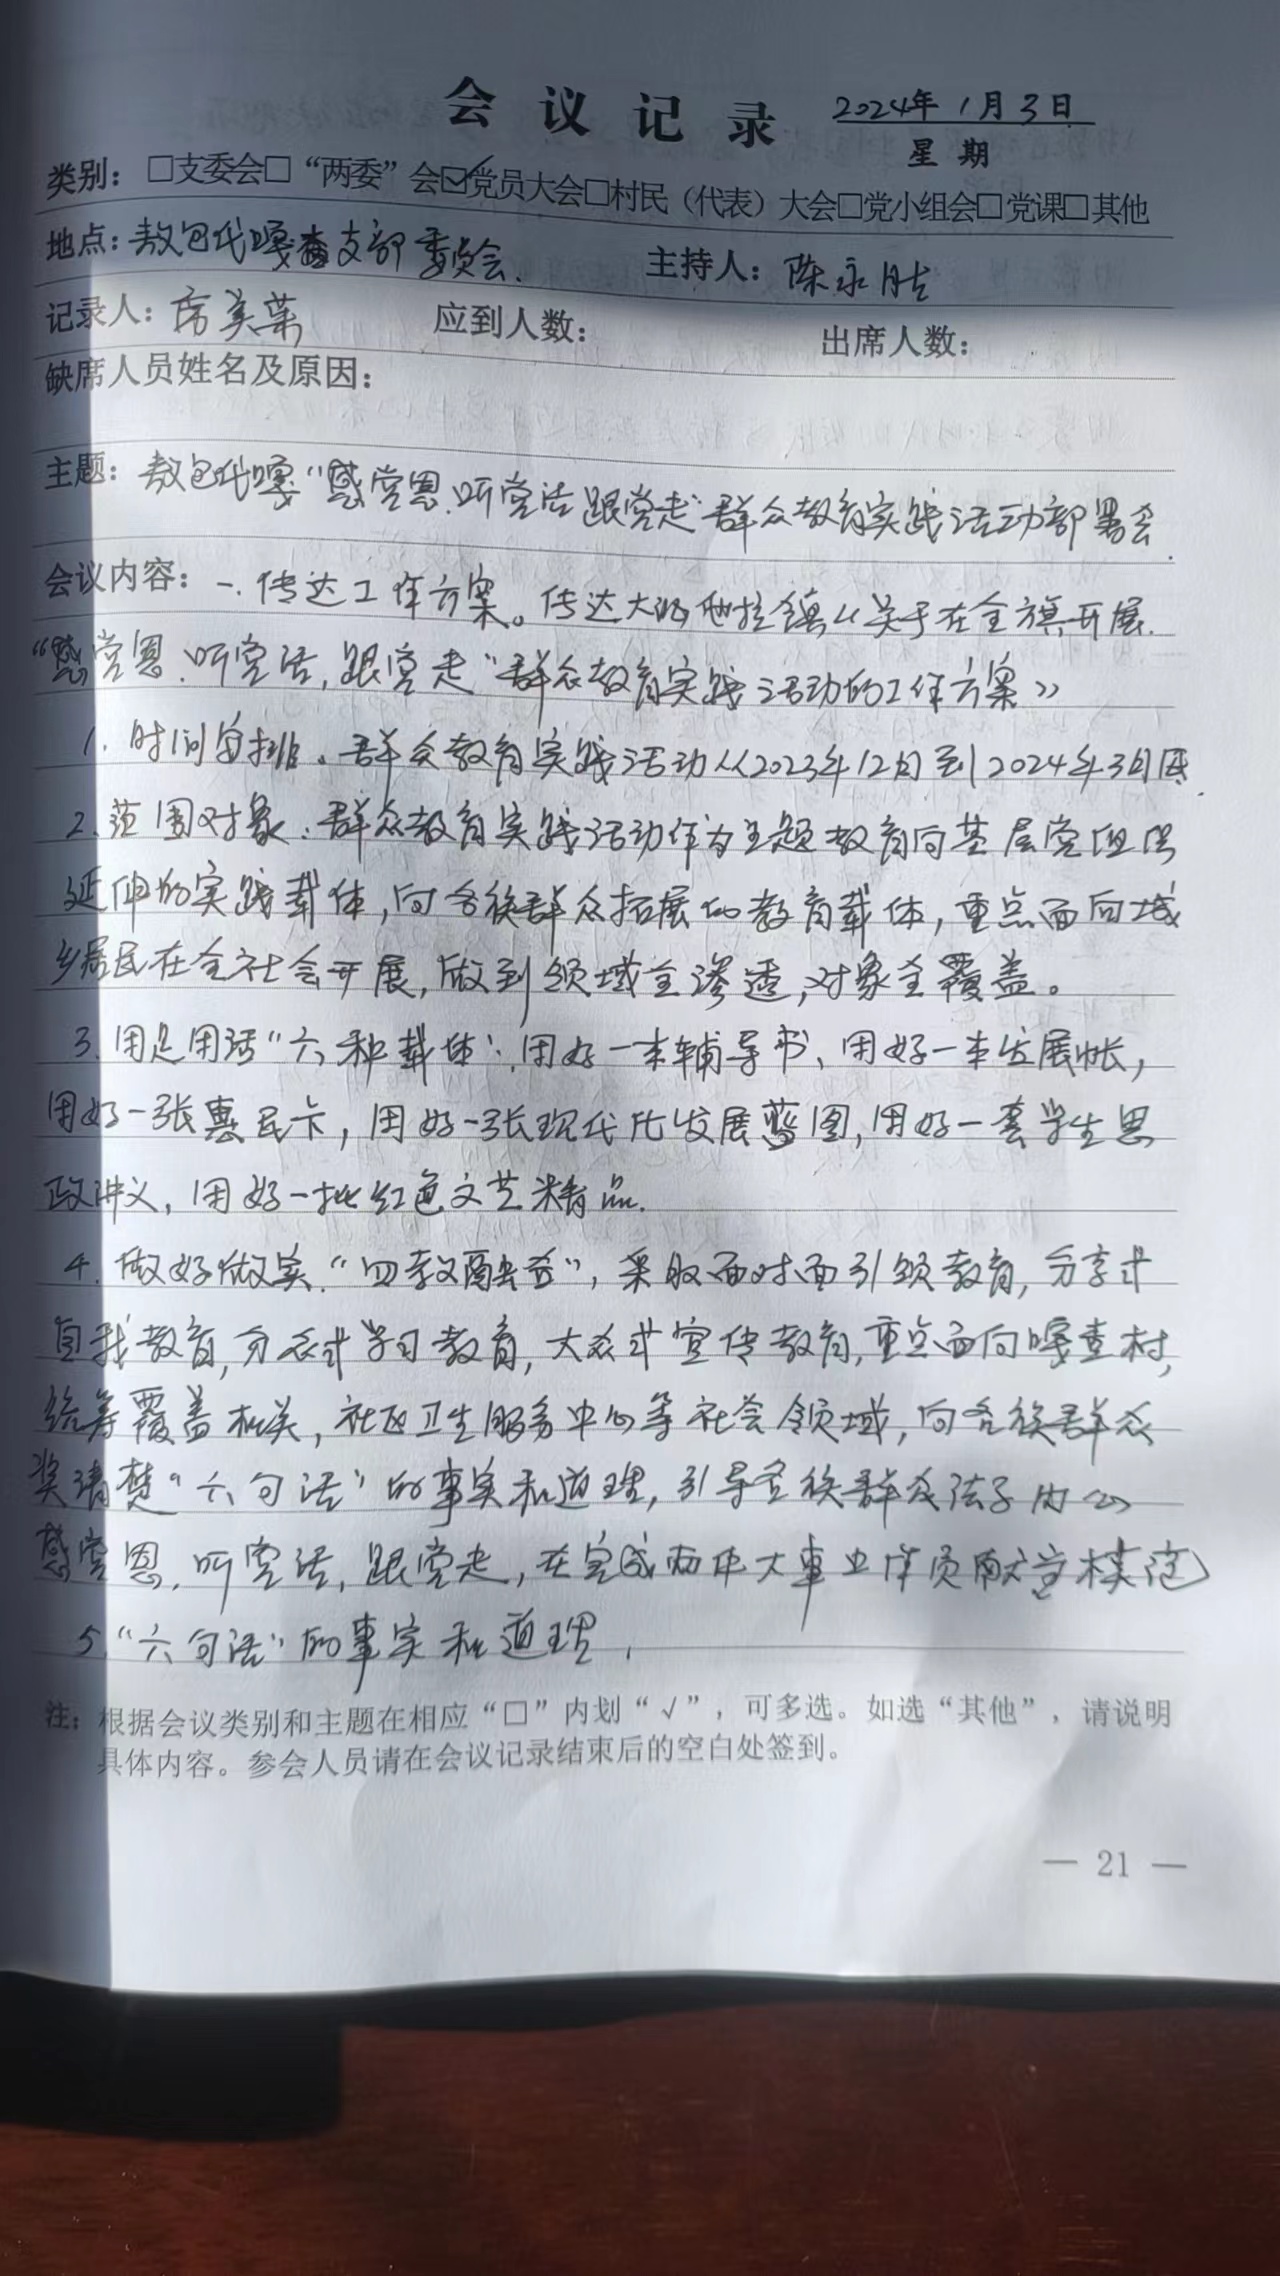 会议记录 2024年1月3日
星期
类别：□支委会□“两委”会☑党员大会□村民（代表）大会□党小组会□党课□其他
地点：敖包代嘎查支部委员会. 主持人：陈永胜
记录人：席美荣 应到人数： 出席人数：
缺席人员姓名及原因：
主题：敖包代嘎“感党恩.听党话跟党走”群众教育实践活动部署会.
会议内容：一.传达工作方案。传达大沁他拉镇《关于在全旗开展.
“感党恩.听党话,跟党走”群众教育实践活动的工作方案》
1.时间安排.群众教育实践活动从2023年12月至2024年3月底.
2.范围对象.群众教育实践活动作为主题教育向基层党组织
延伸的实践载体,向各族群众拓展的教育载体,重点面向城
乡居民在全社会开展,做到领域全渗透,对象全覆盖。
3.用足用活“六种载体”.用好一本辅导书、用好一本发展帐,
用好一张惠民卡,用好一张现代化发展蓝图,用好一套学生思
政讲义,用好一批红色文艺精品.
4.做好做实“四教融合”,采取面对面引领教育,分享式
自我教育,分众式学习教育,大众式宣传教育,重点面向嘎查村,
统筹覆盖机关,社区卫生服务中心等社会领域,向各族群众
讲清楚“六句话”的事实和道理,引导各族群众孩子内心
感党恩.听党话,跟党走,在完成两件大事上作贡献立模范
5.“六句话”的事实和道理,
注：根据会议类别和主题在相应“□”内划“√”，可多选。如选“其他”，请说明
具体内容。参会人员请在会议记录结束后的空白处签到。
— 21 —